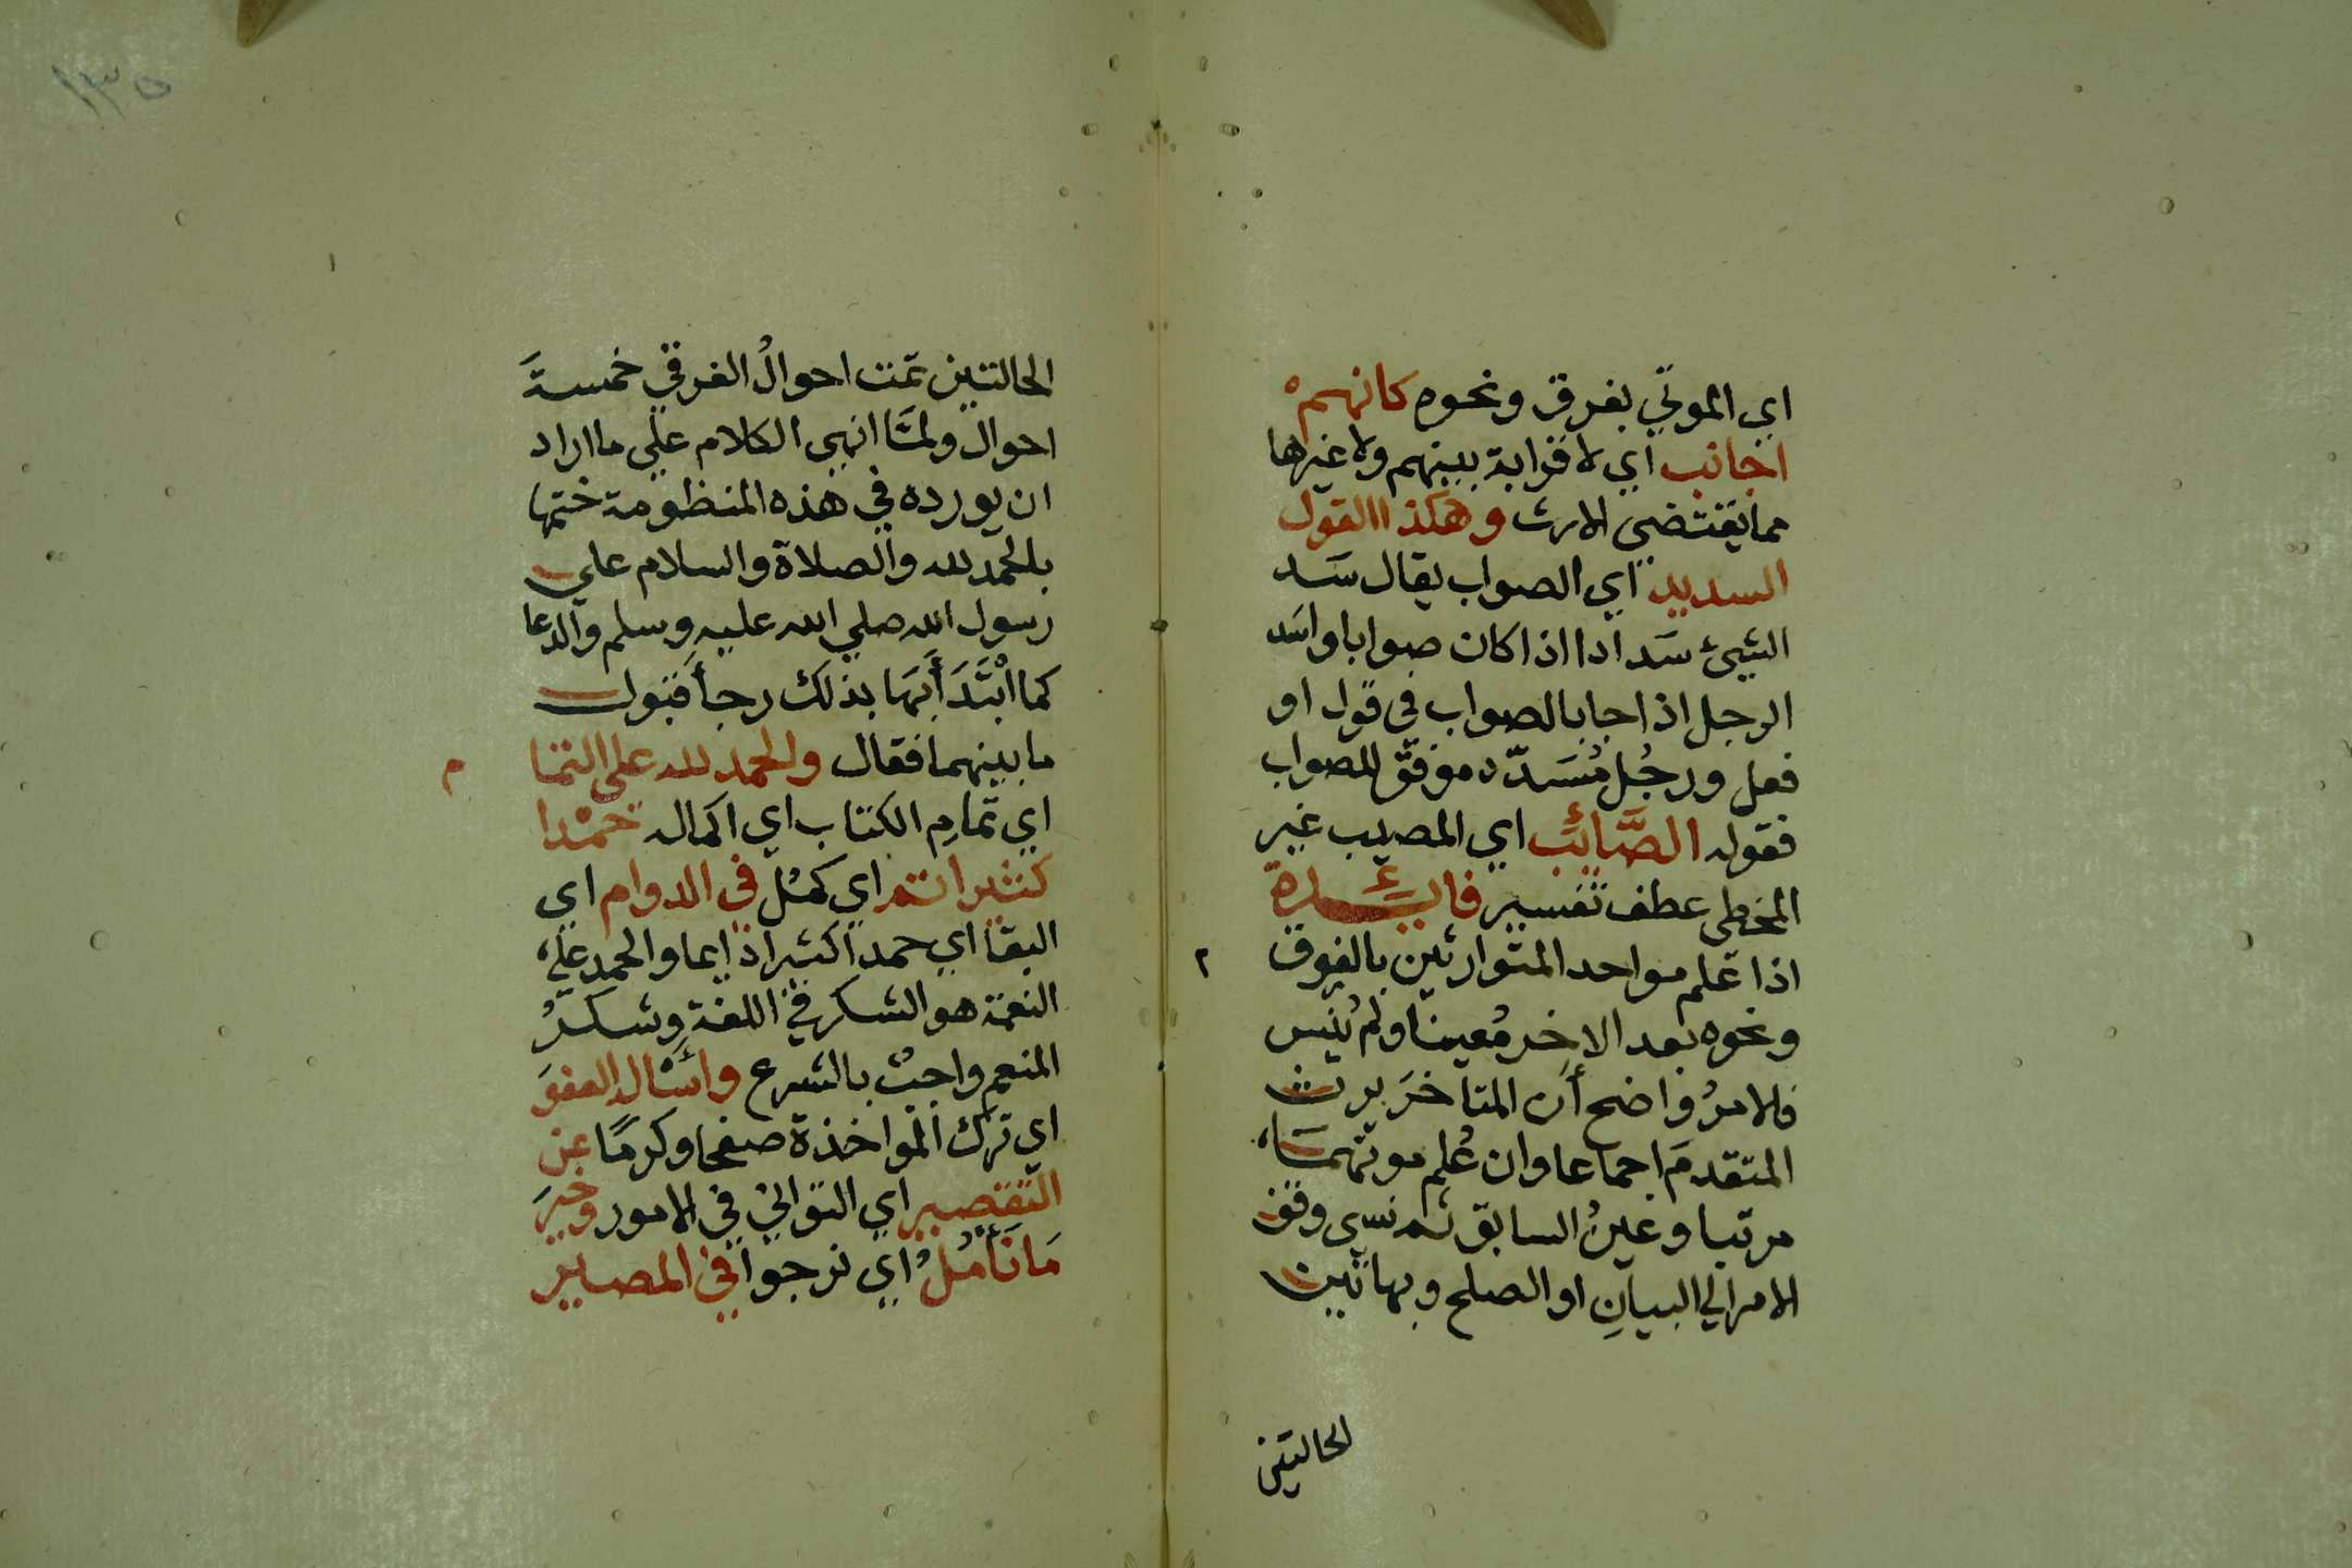 اي الموتي بغرق ونحوه كانهم
اجانب اي لا قرابة بينهم ولا غيرها
مما يقتضي الارث وهكذا القول
السديد اي الصواب يقال سَد
الشيئ سَدادا اذا كان صوابا واسَد
الرجل اذا جا بالصواب في قول او
فعل ورجُل مُسَدّد موفق للصواب
فقوله الصَّائب اي المصيب غير
المخطي عطف تفسير فايـــدة
اذا عُلم موا حد المتوارثين بالغرق
ونحوه بعد الاخر مُعينا ولم يُنس
فلا مرُ واضح أن المتاخرَ يرث
المتقدمَ اجماعا وان عُلم موتهما
مرتبا وعينُ السابق ثم نسي وقف
الامر الي البيانِ او الصلح وبهاتين
الحالتين
١٣٥
الحالتين تمت احوالُ الغرقي خمسةَ
احوال ولمَّا انهي الكلام علي ما اراد
ان يورده في هذه المنظومة ختمها
بالحمد لله والصلاة والسلام علي
رسول الله صلي الله عليه وسلم والدعا
كما ابْتَدَأَبَهَا بذلك رجأ قبول
ما بينهما فقال والحمد لله على التما م
اي تمامِ الكتاب اي اكماله حَمْدا
كثيرا تم اي كمُل في الدوام اي
البقا اي حمدا كثيرا دايما والحمد علي
النعمة هو الشكر في اللغة وشكرُ
المنعم واجبٌ بالشرع واسْال العفوَ
اي ترك المواخذة صفحا وكرمًا عن
التقصير اي التواني في الامور وخيرَ
مَا نَأْمُلُ اي نرجوا في المصير